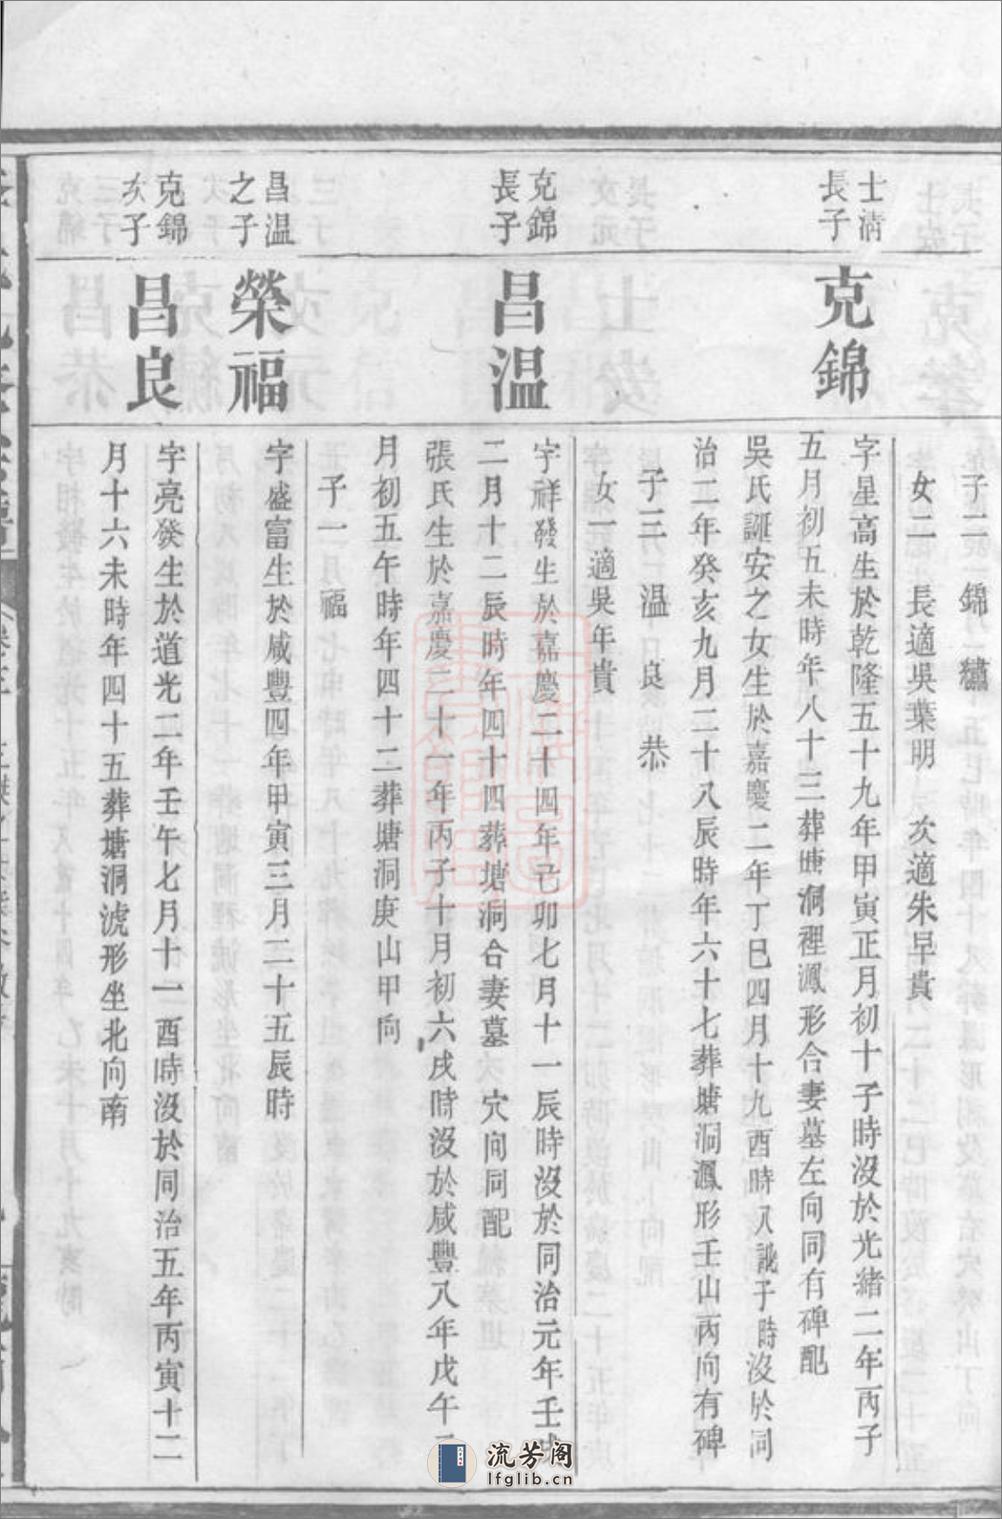 子二　錦　繡
女二　長適吳葉明　次適朱早貴
士清
長子
克錦
字星高生於乾隆五十九年甲寅正月初十子時沒於光緒二年丙子
五月初五未時年八十三葬塘洞裡鳳形合妻墓左向同有碑配
吳氏誕安之女生於嘉慶二年丁巳四月十九酉時又訛子時沒於同
治二年癸亥九月二十八辰時年六十七葬塘洞鳳形壬山丙向有碑
子三　温　良　恭
女一適吳年貴
克錦
長子
昌温
字祥發生於嘉慶二十四年己卯七月十一辰時沒於同治元年壬戌
二月十二辰時年四十四葬塘洞合妻墓　穴向同配
張氏生於嘉慶二十一年丙子十月初六戌時沒於咸豐八年戊午二
月初五午時年四十二葬塘洞庚山甲向
子一　福
昌温
之子
榮福
字盛富生於咸豐四年甲寅三月二十五辰時
克錦
次子
昌良
字亮癸生於道光二年壬午七月十一酉時沒於同治五年丙寅十二
月十六未時年四十五葬塘洞淲形坐北向南
流芳阁
lfglib.cn